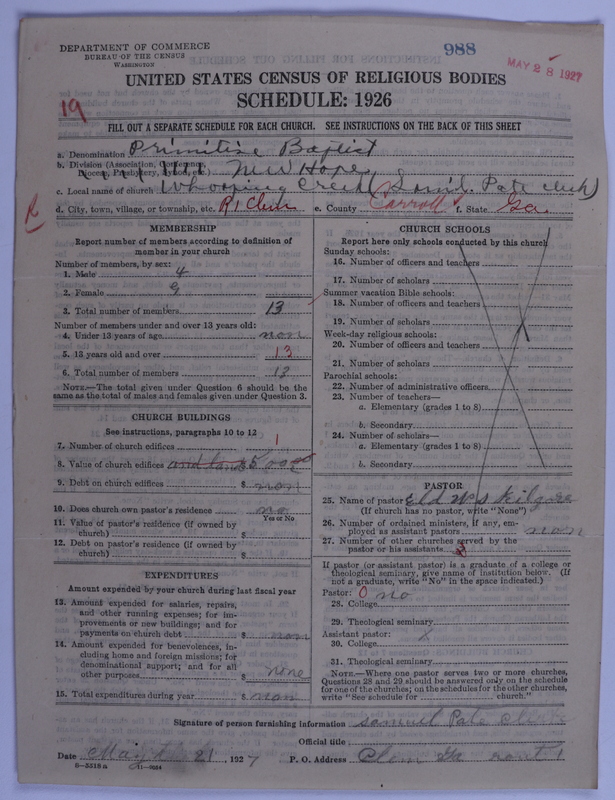 DEPARTMENT OF COMMERCE
BUREAU OF THE CENSUS
WASHINGTON
988
MAY 28 1927
UNITED STATES CENSUS OF RELIGIOUS BODIES
SCHEDULE: 1926
19
FILL OUT A SEPARATE SCHEDULE FOR EACH CHURCH. SEE INSTRUCTIONS ON THE BACK OF THIS SHEET
a. Denomination Primitive Baptist
b. Division (Association, Conference, Diocese, Presbytery, New Hope
c. Local name of church Whooping Creek (Samil. Pate clerk)
R
d. City, town, village, or township, etc. R 1 Clem e. County Carroll f. State Ga.
MEMBERSHIP
Report number of members according to definition of
member in your church
Number of members, by sex:
1. Male 4
2. Female 9
3. Total number of members 13
Number of members under and over 13 years old:
4. Under 13 years of age non
5. 13 years old and over 13
6. Total number of members 13
NOTE.—The total given under Question 6 should be the
same as the total of males and females given under Question 3.
CHURCH BUILDINGS
See instructions, paragraphs 10 to 12
7. Number of church edifices 1
8. Value of church edifices and land $500
9. Debt on church edifices $ non
10. Does church own pastor's residence no
Yes or No
11. Value of pastor's residence (if owned by
church) $
12. Debt on pastor's residence (if owned by
church) $
EXPENDITURES
Amount expended by your church during last fiscal year
13. Amount expended for salaries, repairs,
and other running expenses; for im-
provements or new buildings; and for
payments on church debt $ non
14. Amount expended for benevolences, in-
cluding home and foreign missions; for
denominational support; and for all
other purposes $ none
15. Total expenditures during year $ non
CHURCH SCHOOLS
Report here only schools conducted by this church
Sunday schools:
16. Number of officers and teachers
17. Number of scholars
Summer vacation Bible schools:
18. Number of officers and teachers
19. Number of scholars
Week-day religious schools:
20. Number of officers and teachers
21. Number of scholars
Parochial schools:
22. Number of administrative officers
23. Number of teachers—
a. Elementary (grades 1 to 8)
b. Secondary
24. Number of scholars—
a. Elementary (grades 1 to 8)
b. Secondary
PASTOR
25. Name of pastor Eld W S Kilgore
(If church has no pastor, write "None")
26. Number of ordained ministers, if any, em-
ployed as assistant pastors non
27. Number of other churches served by the
pastor or his assistants
If pastor (or assistant pastor) is a graduate of a college or
theological seminary, give name of institution below. (If
not a graduate, write "No" in the space indicated.)
Pastor: O no
28. College
29. Theological seminary
Assistant pastor: X
30. College
31. Theological seminary
NOTE.—Where one pastor serves two or more churches,
Questions 28 and 29 should be answered only on the schedule
for one of the churches; on the schedules for the other churches,
write "See schedule for church."
Signature of person furnishing information Samuel Pate Clerk
Official title
Date May 21, 1927 P. O. Address Clem Ga rout 1
8—5518a 11—9624